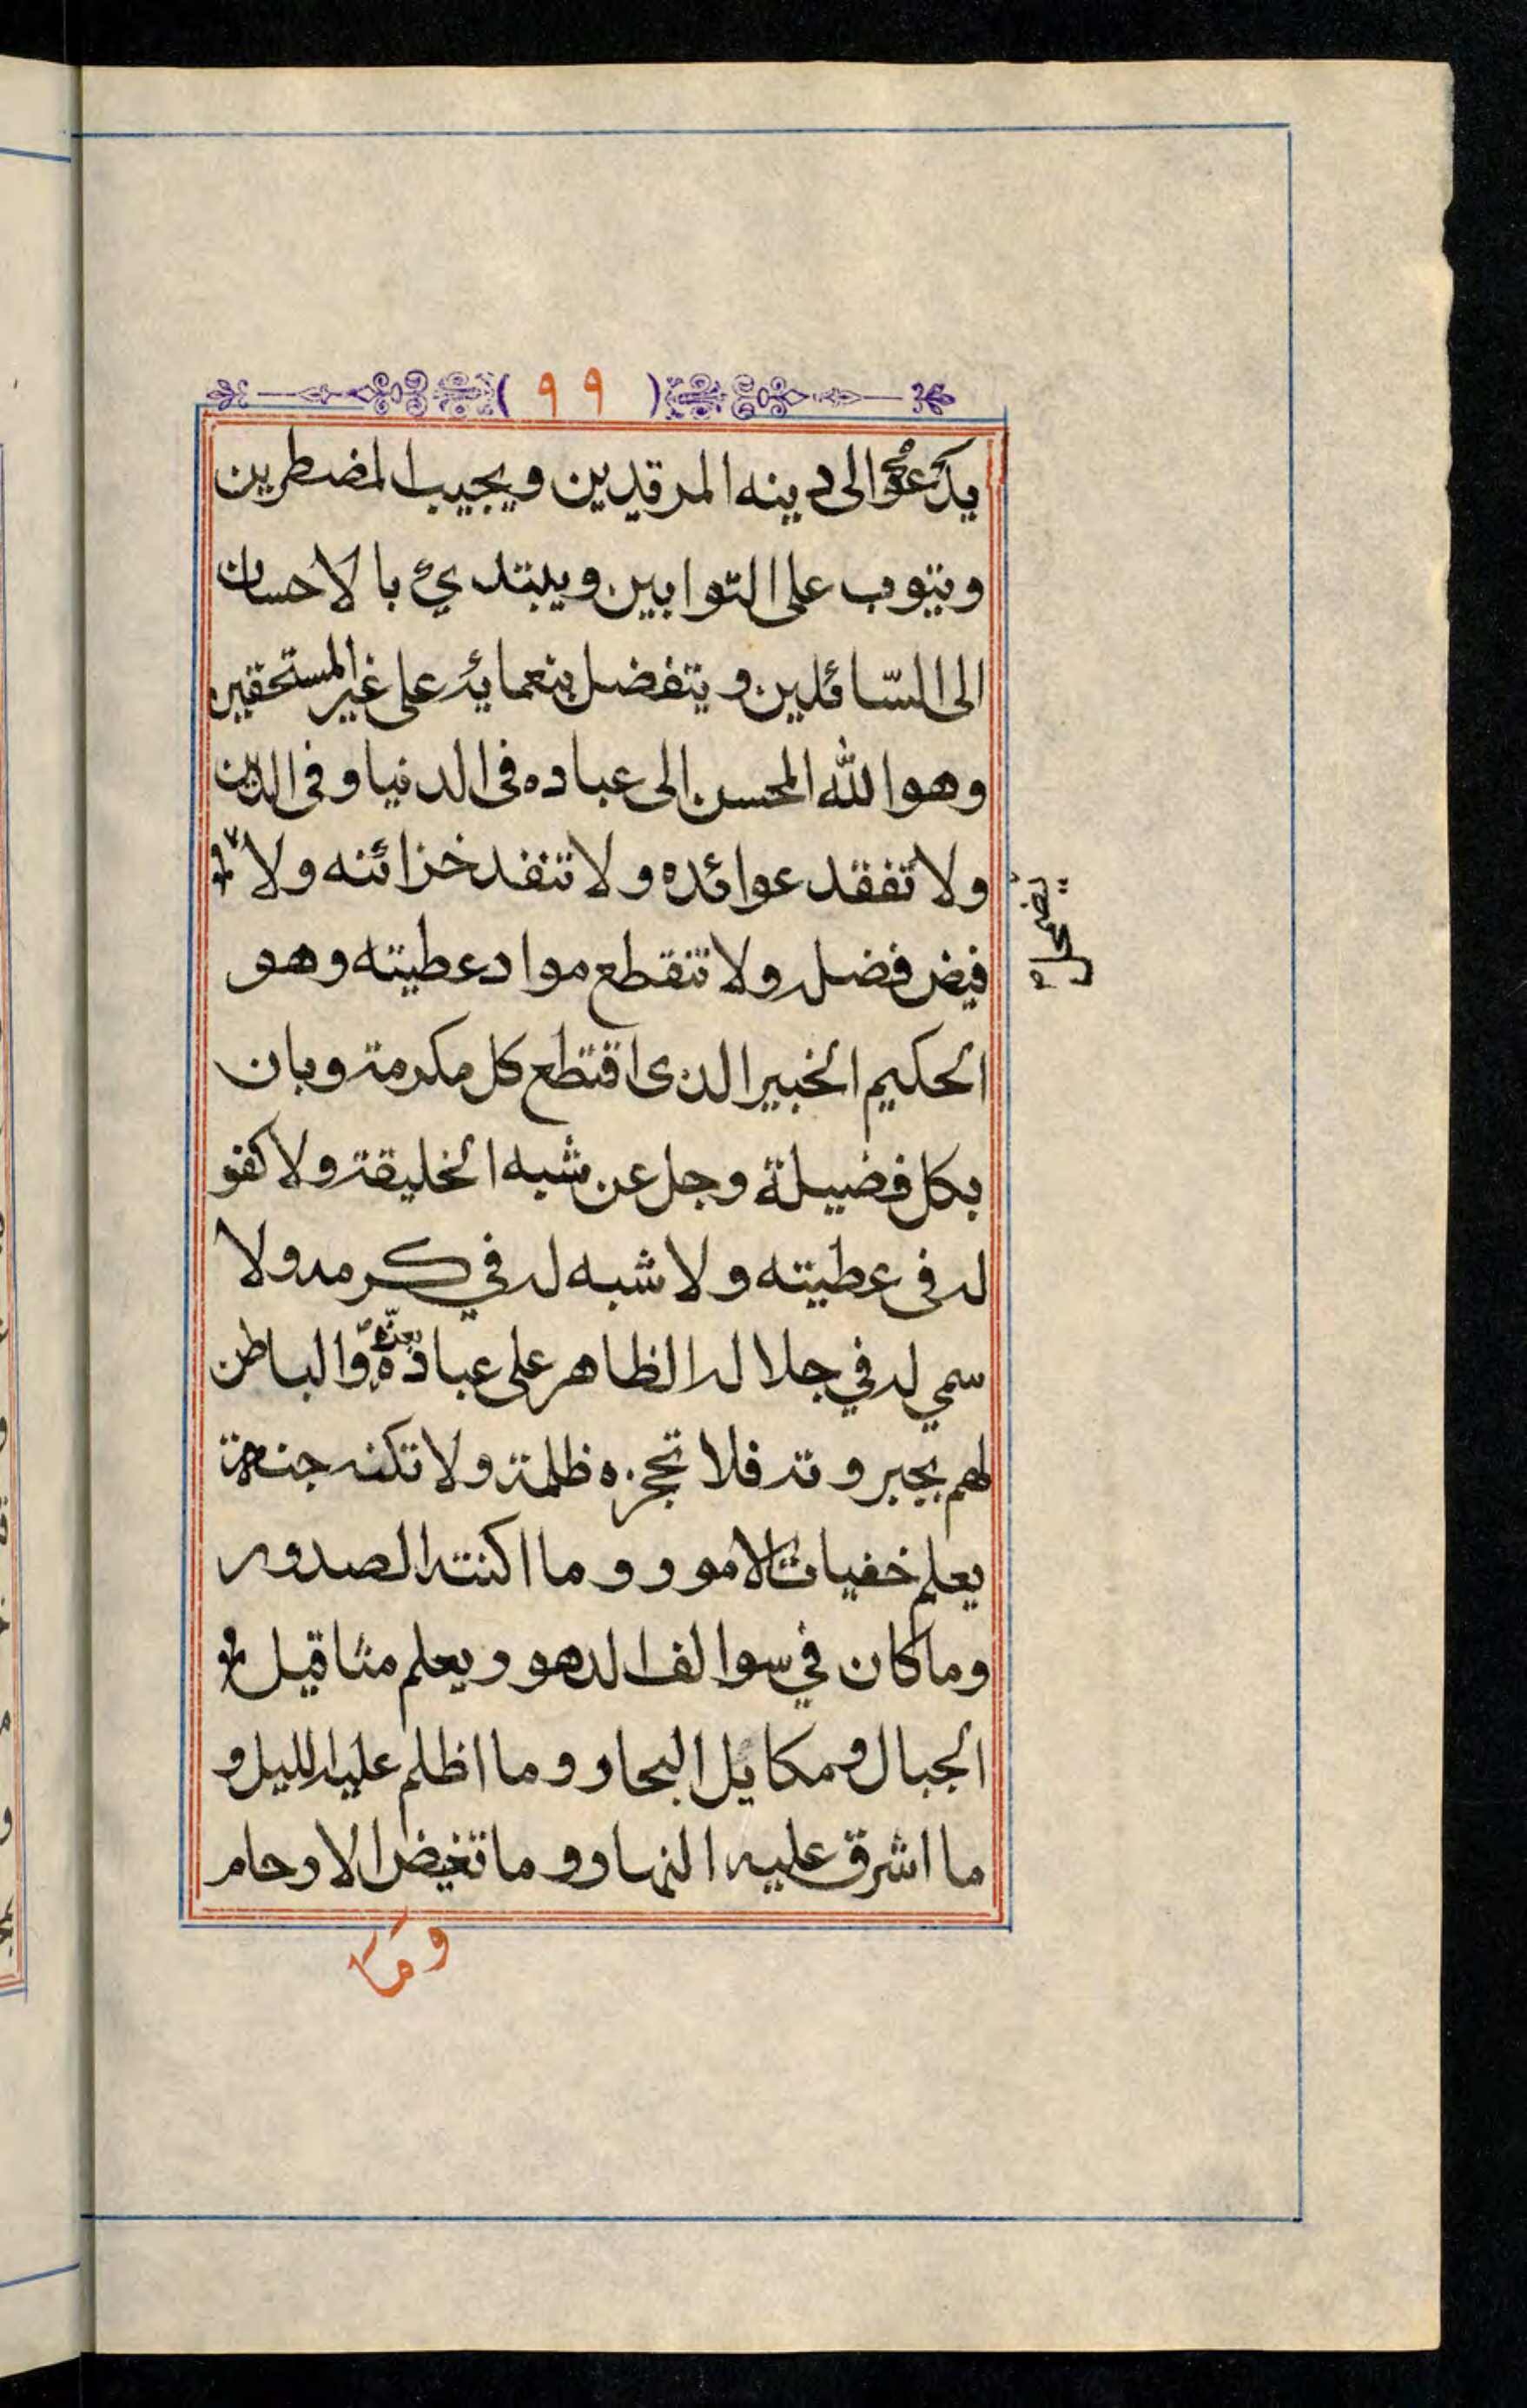 ( ٩٩ )
يدعوا الى دينه المرقدين ويجيب المضطرين
ويتوب على التوابين ويبتدئ بالاحسان
الى السّائلين ويتفضل بنعمايه على غير المستحقين
وهو الله المحسن الى عباده في الدنيا وفي الدين
ولا تفقد عوائده ولا تنفد خزائنه ولا
يضمحل
فيض فضله ولا تنقطع مواد عطيته وهو
الحكيم الخبير الذى اقتطع كل مكرمة وبان
بكل فضيلة وجل عن شبه الخليقة ولا كفو
له في عطيته ولا شبه له في كرمه ولا
سمي له في جلاله الظاهر على عباده بعزّه والباطن
لهم بجبروته فلا تحجزه ظلمة ولا تكنه جنة
يعلم خفيات الامور وما اكنته الصدور
وما كان في سوالف الدهور ويعلم مثاقيل
الجبال ومكايل البحار وما اظلم عليه الليل و
ما اشرق عليه النهار وما تغيض الارحام
وما